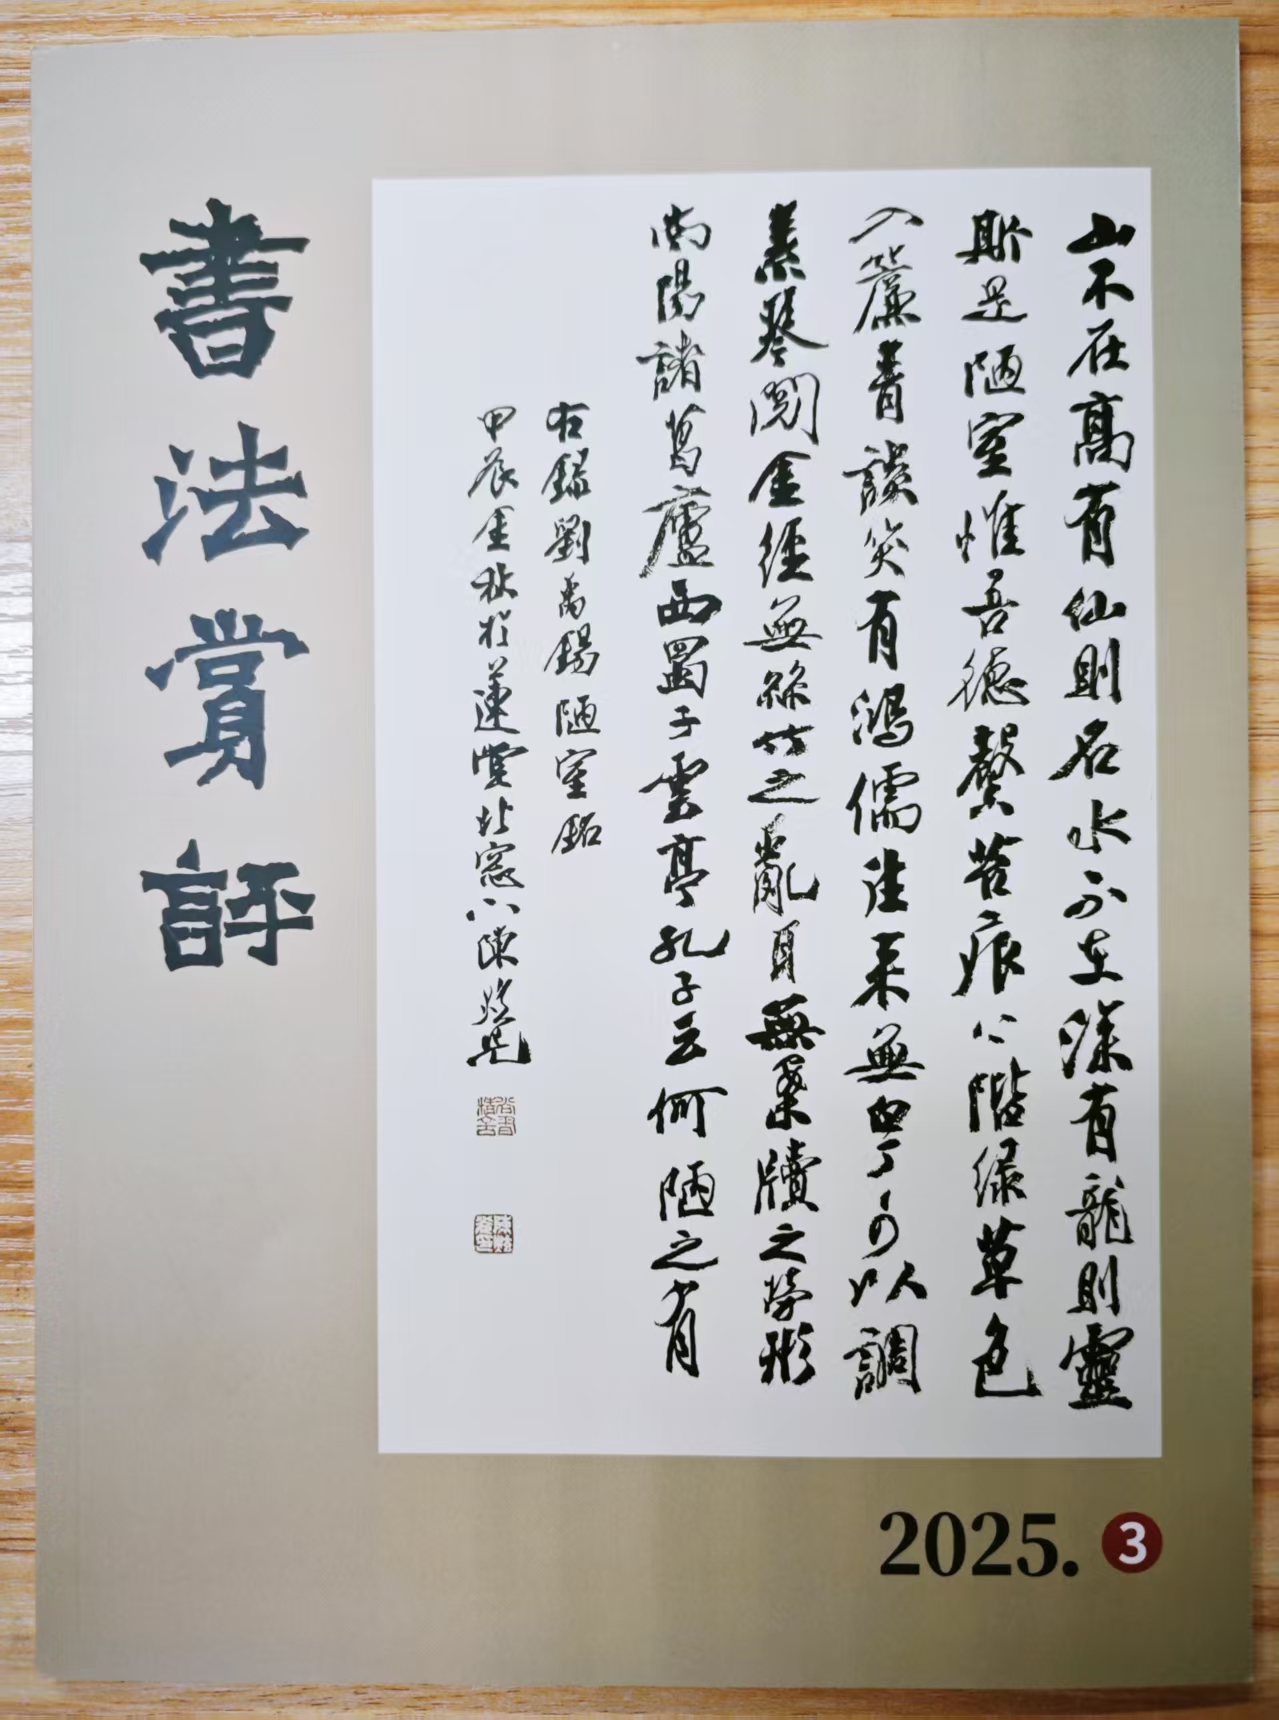 書法賞評
山不在高有仙則名水不在深有龍則靈
斯是陋室惟吾德馨苔痕上階綠草色
入簾青談笑有鴻儒往來無白丁可以調
素琴閱金經無絲竹之亂耳無案牘之勞形
南陽諸葛廬西蜀子雲亭孔子云何陋之有
右錄劉禹錫陋室銘
甲辰金秋於蓮堂北窓下陳
2025.3